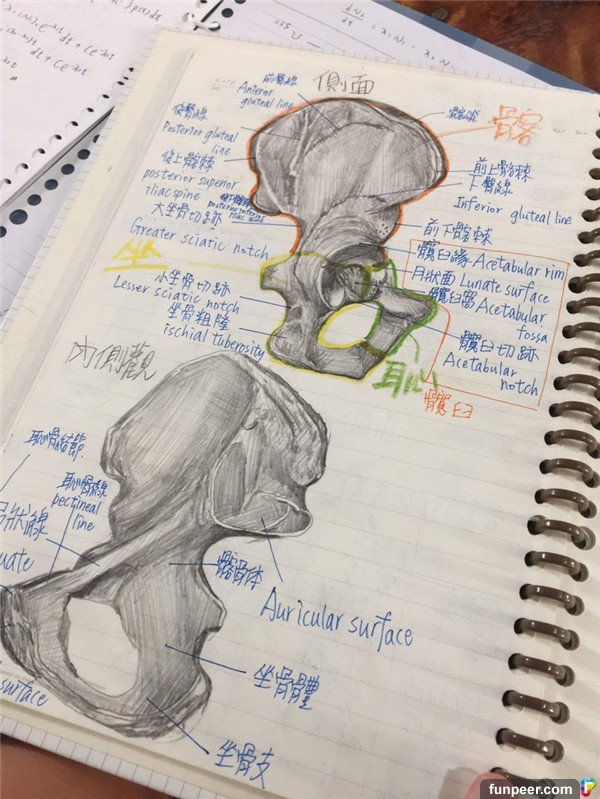 側面
前臀線
Anterior
gluteal line
後臀線
Posterior gluteal
line
後上髂棘
posterior superior
iliac spine
posterior inferior
iliac spine
大坐骨切跡
Greater sciatic notch
坐
小坐骨切跡
Lesser sciatic notch
坐骨粗隆
ischial tuberosity
髂嵴
骨客
前上髂棘
下臀線
Inferior gluteal line
前下髂棘
髖臼緣 Acetabular rim
月狀面 Lunate surface
髖臼窩 Acetabular
fossa
髖臼切跡
Acetabular
notch
髖臼
內側觀
恥骨結節
恥骨線
pectineal
line
狀線
uate
髂骨体
Auricular surface
坐骨體
surface
坐骨支
funpeer.com